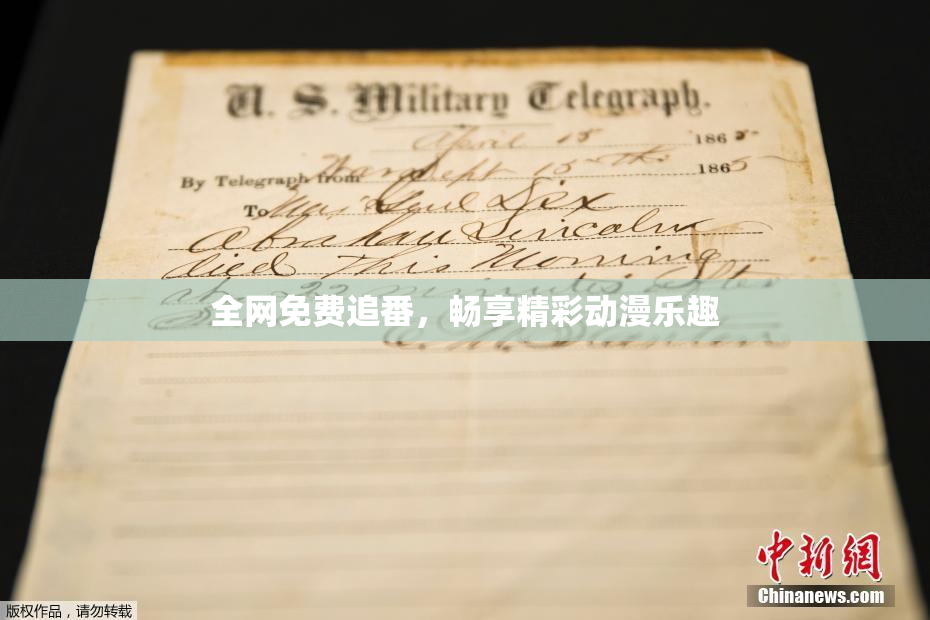 U. S. Military Telegraph.
April 15 1865
By Telegraph from War Dept 15th 1865
To Maj Genl Dix
Abraham Lincoln
died This Morning
at 22 minutes after
全网免费追番，畅享精彩动漫乐趣
E. M. Stanton
中新网
Chinanews.com
版权作品，请勿转载